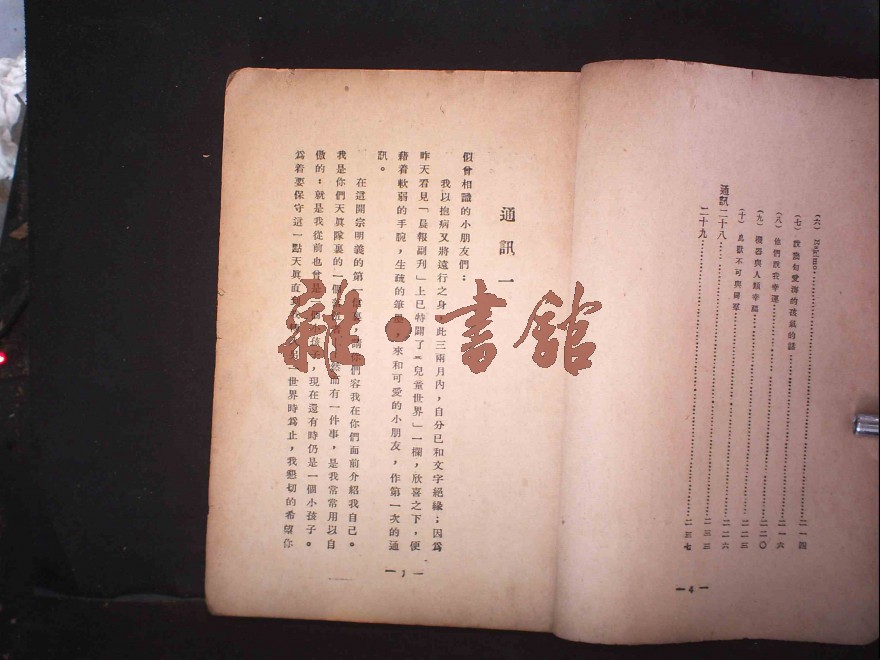 (六) Eskimo……二一四
(七)
(八) 他們說我幸運……二一六
(九) 機器與人類幸福……二二〇
(十) 鳥獸不可與同羣……二二三
通訊二十八……二二六
二十九……二三三
……二三七
—4—
通訊一
似曾相識的小朋友們：
我以抱病又將遠行之身，此三兩月內，自分已和文字絕緣；因爲
昨天看見「晨報副刋」上已特闢了「兒童世界」一欄，欣喜之下，便
藉着軟弱的手腕，生疏的筆墨，來和可愛的小朋友，作第一次的通
訊。
在這開宗明義的第一信裏，請你們容我在你們面前介紹我自己。
我是你們天眞隊裏的一個　　然而有一件事，是我常常用以自
傲的：就是我從前也曾是一個小孩子，現在還有時仍是一個小孩子。
爲着要保守這一點天眞直　　世界時爲止，我懇切的希望你
雜·書館